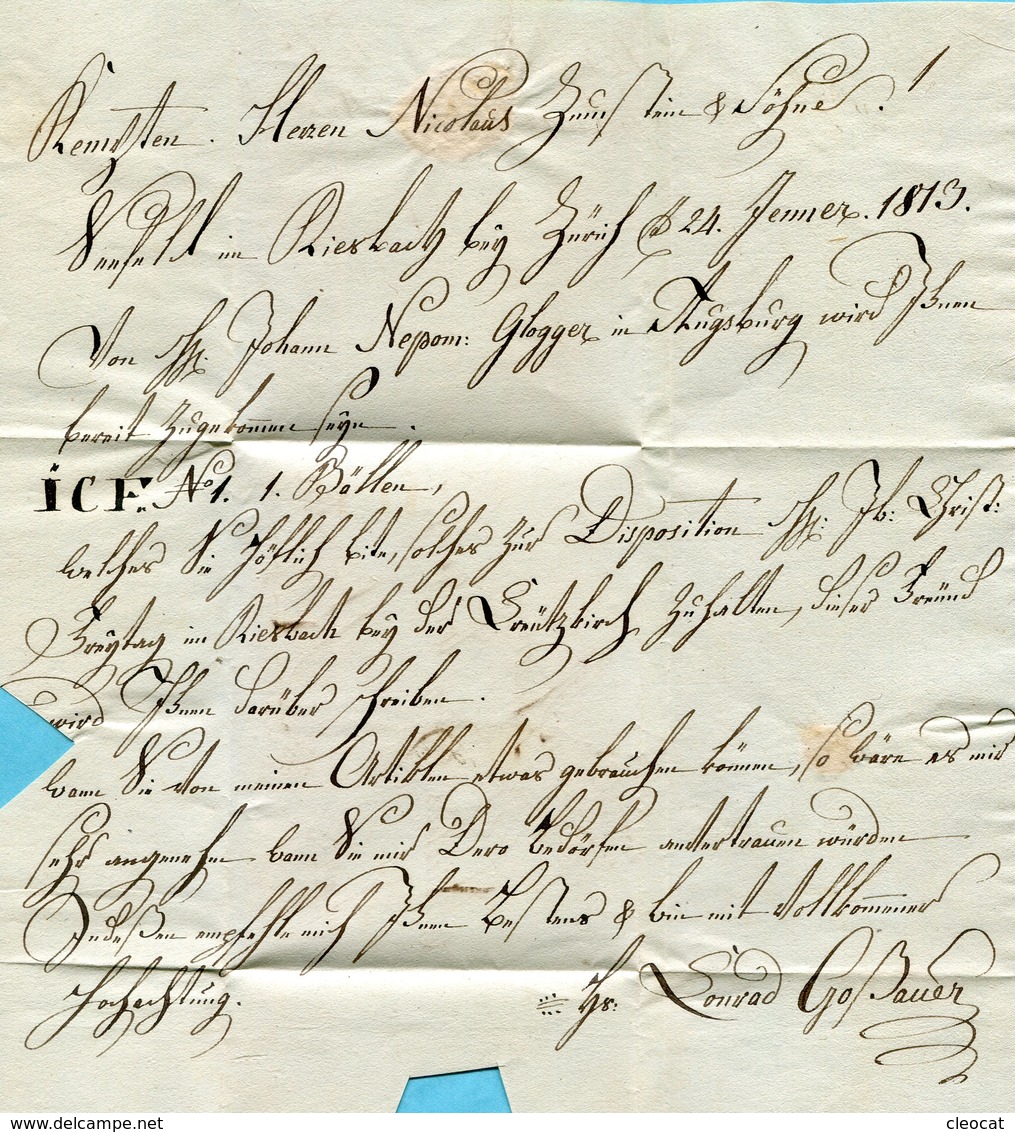 Kempten. Herren Nicolaus Zumstein & Söhne.
Seefeld im Riesbach bey Zürich d 24. Jenner. 1813.
Von Hh. Johann Nepom: Glogger in Augsburg wird Ihnen
bereit zugekom̅en seyn.
ICF. No 1. 1. Bällen,
welches Sie höflich bite, solches zur Disposition Hh: Jb: Christ:
Freytag im Riesbach bey der Creützkirch zuhalten, dieser Freünd
wird Ihnen darüber schreiben.
wann Sie von meinen Artiklen etwas gebrauchen können, so wäre es mir
sehr angenehm wann Sie mir Dero bedörfen anvertrauen würden
Indeßen empfehle mich Ihnen Bestens & bin mit Vollkommener
Hochachtung. Hs: Conrad Goßauer
cleocat